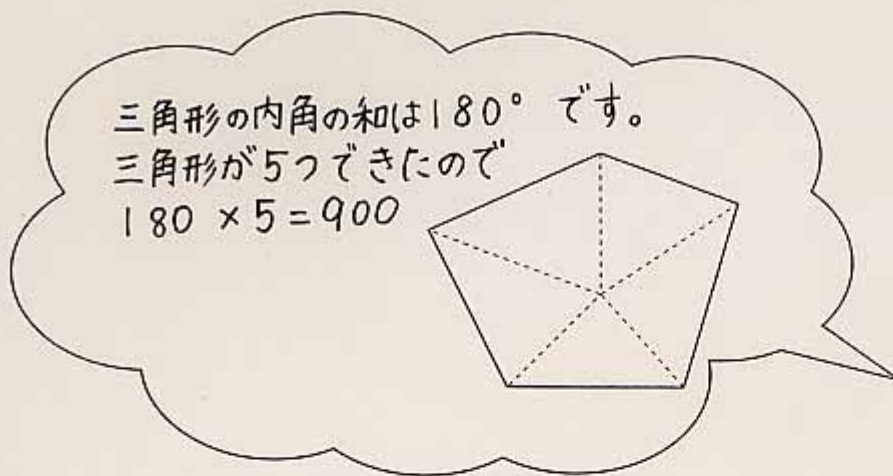 三角形の内角の和は180°です。
三角形が5つできたので
180×5=900